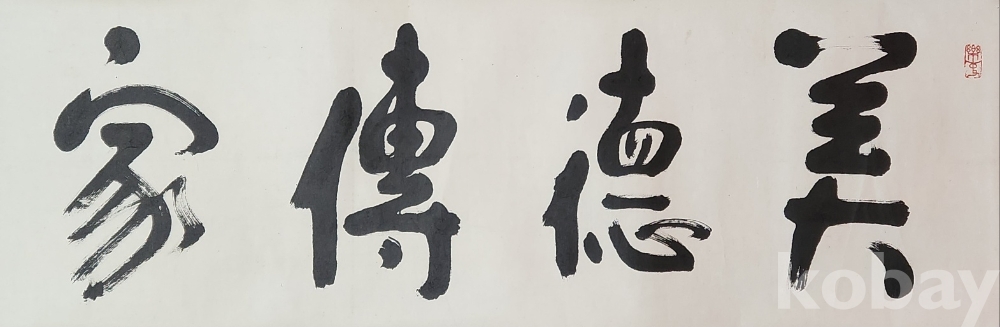 美德傳家
kobay